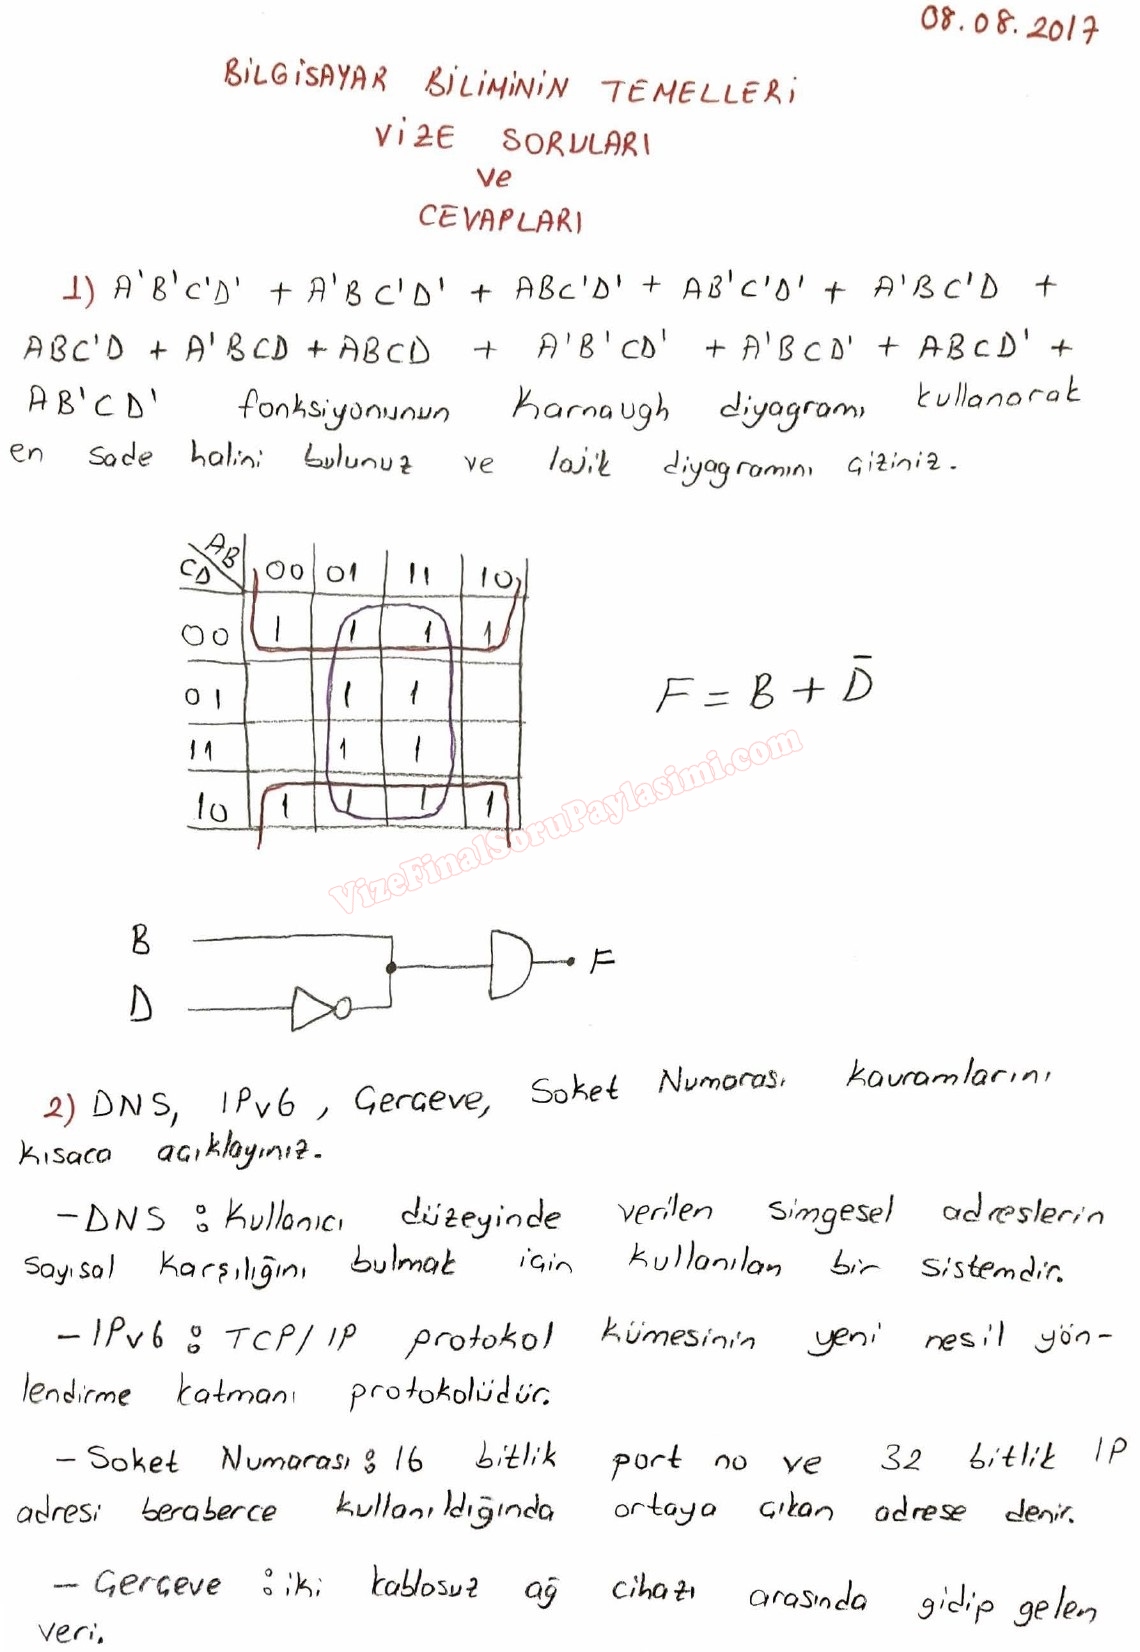 08.08.2017
BİLGİSAYAR BİLİMİNİN TEMELLERİ
VİZE SORULARI
ve
CEVAPLARI
1) A'B'C'D' + A'BC'D' + ABC'D' + AB'C'D' + A'BC'D +
ABC'D + A'BCD + ABCD + A'B'CD' + A'BCD' + ABCD' +
AB'CD' fonksiyonunun Karnaugh diyagramı kullanarak
en sade halini bulunuz ve lojik diyagramını çiziniz.
AB
CD 00 01 11 10
00 1 1 1 1
01 1 1
11 1 1
10 1 1 1 1
F = B + D̄
VizeFinalSoruPaylasimi.com
B
F
D
2) DNS, IPv6, Çerçeve, Soket Numarası kavramlarını
kısaca açıklayınız.
- DNS : Kullanıcı düzeyinde verilen simgesel adreslerin
sayısal karşılığını bulmak için kullanılan bir sistemdir.
- IPv6 : TCP/IP protokol kümesinin yeni nesil yön-
lendirme katmanı protokolüdür.
- Soket Numarası : 16 bitlik port no ve 32 bitlik IP
adresi beraberce kullanıldığında ortaya çıkan adrese denir.
- Çerçeve : iki kablosuz ağ cihazı arasında gidip gelen
veri.